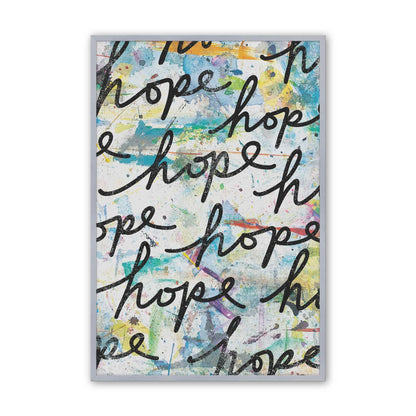 hope
hope
e hope h
ope hope
hope h
pe hope